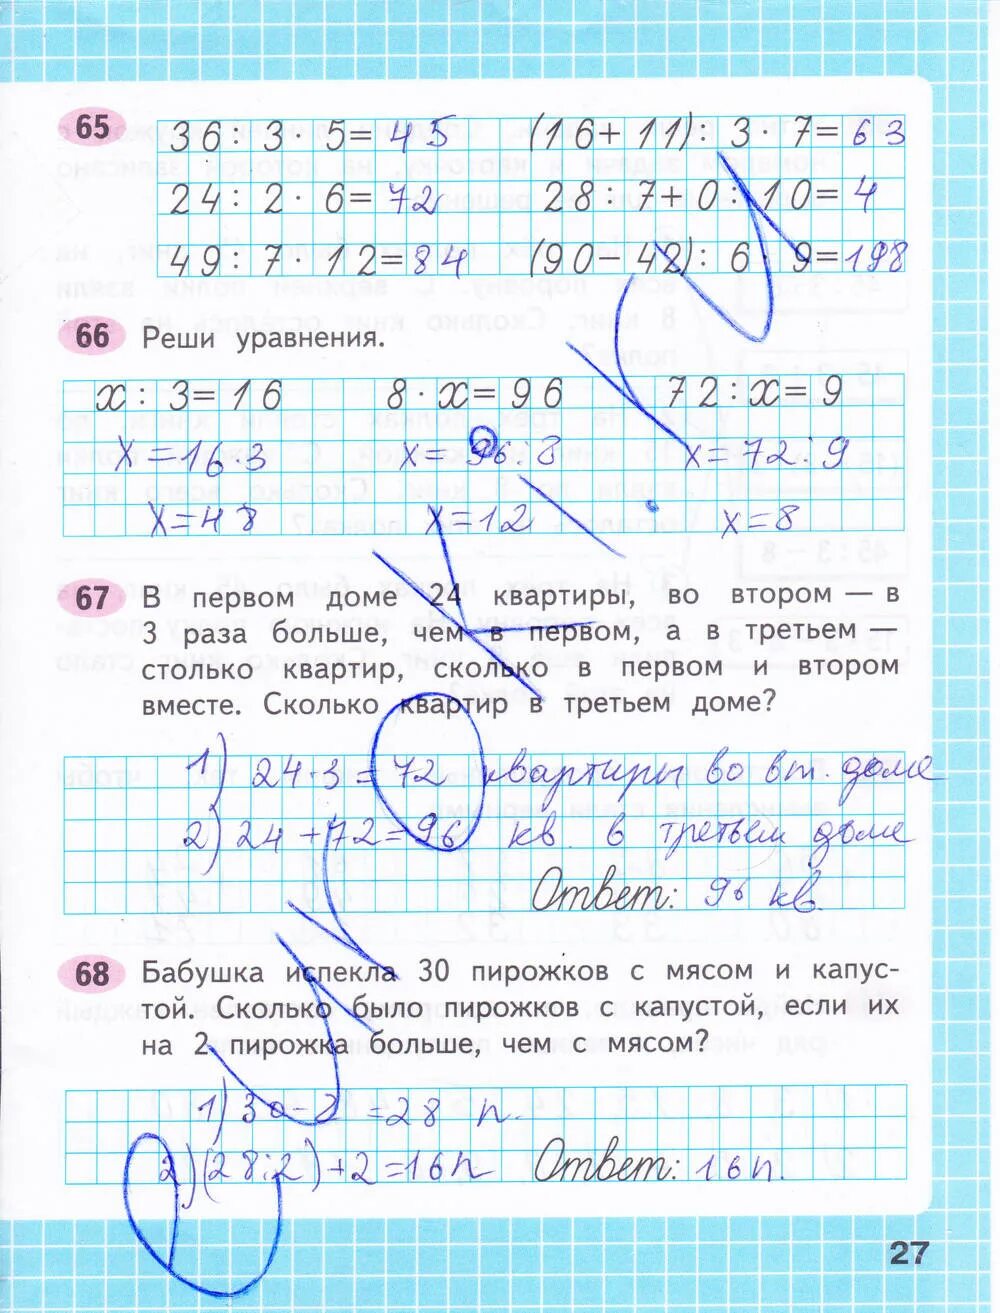 65
36 : 3 · 5 = 45 (16 + 11) : 3 · 7 = 63
24 : 2 · 6 = 72 28 : 7 + 0 : 10 = 4
49 : 7 · 12 = 84 (90 – 42) : 6 · 9 = 198
66 Реши уравнения.
x : 3 = 16 8 · x = 96 72 : x = 9
x = 16·3 x = 96:8 x = 72:9
x = 48 x = 12 x = 8
67 В первом доме 24 квартиры, во втором — в
3 раза больше, чем в первом, а в третьем —
столько квартир, сколько в первом и втором
вместе. Сколько квартир в третьем доме?
1) 24·3 = 72 квартиры во вт. доме
2) 24 + 72 = 96 кв. в третьем доме
Ответ: 96 кв.
68 Бабушка испекла 30 пирожков с мясом и капус-
той. Сколько было пирожков с капустой, если их
на 2 пирожка больше, чем с мясом?
1) 30 – 2 = 28 п.
2) (28:2) + 2 = 16 п Ответ: 16 п.
27